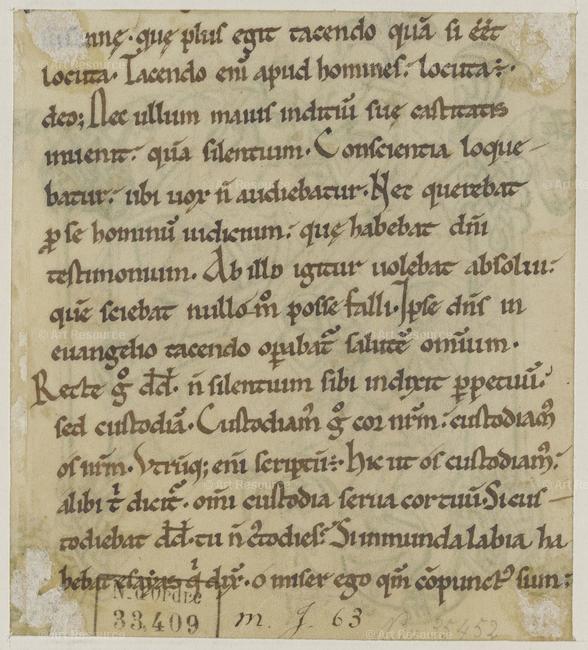 nnę. quę plus egit tacendo quā si eēt
locuta. Tacendo eni̅ apud homines: locuta÷.
deo; Nec ullum maius inditiū suę castitatis
inuenit: quā silentium. Conscientia loque-
batur: ubi uox n̄ audiebatur. Nec querebat
ꝑ se hominū iudicium: quę habebat dn̄i
testimonium. Ab illo igitur uolebat absolui:
quē sciebat nullo m̊ posse falli. Ipse dn̄s in
euangelio tacendo oꝑabat᷑ salutē omium.
Recte g̊ dd̄. n̄ silentium sibi indixit ꝑpetuū:
sed custodiā. Custodiam̄ g̊ cor nr̄m: custodiam̄
os nr̄m. Vtrūq; eni̅ scriptū÷. Hic ut os custodiam̄:
alibi t dicit᷑. omi custodia serua cor tuū. Si cus-
todiebat dd̄. tu n̄ c̄todies: Si inmunda labia ha
bebat esayas q dix̄. o miser ego qm̄ cōpunctꝰ sum:
N. d'Ordre
33,409 m. J. 63
© Art Resource